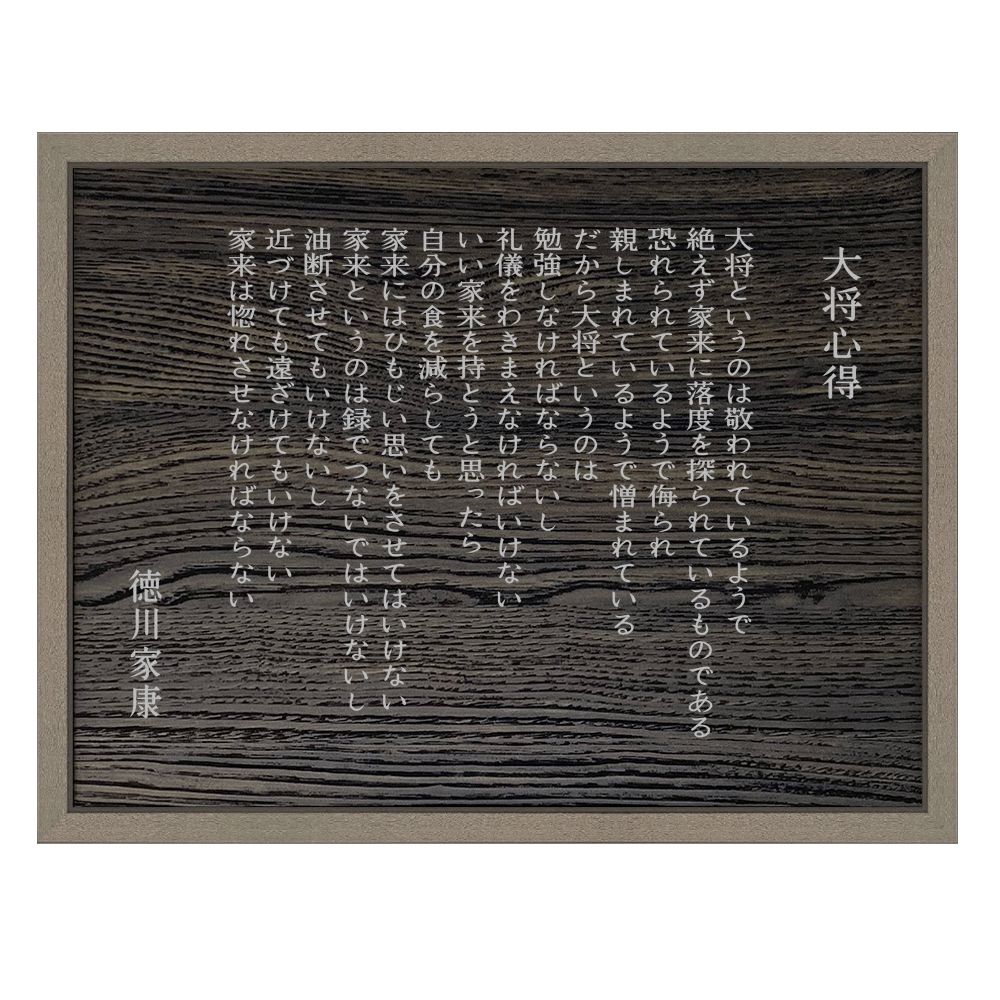 大将心得
大将というのは敬われているようで
絶えず家来に落度を探られているものである
恐れられているようで侮られ
親しまれているようで憎まれている
だから大将というのは
勉強しなければならないし
礼儀をわきまえなければいけない
いい家来を持とうと思ったら
自分の食を減らしても
家来にはひもじい思いをさせてはいけない
家来というのは録でつないではいけないし
油断させてもいけないし
近づけても遠ざけてもいけない
家来は惚れさせなければならない
徳川家康